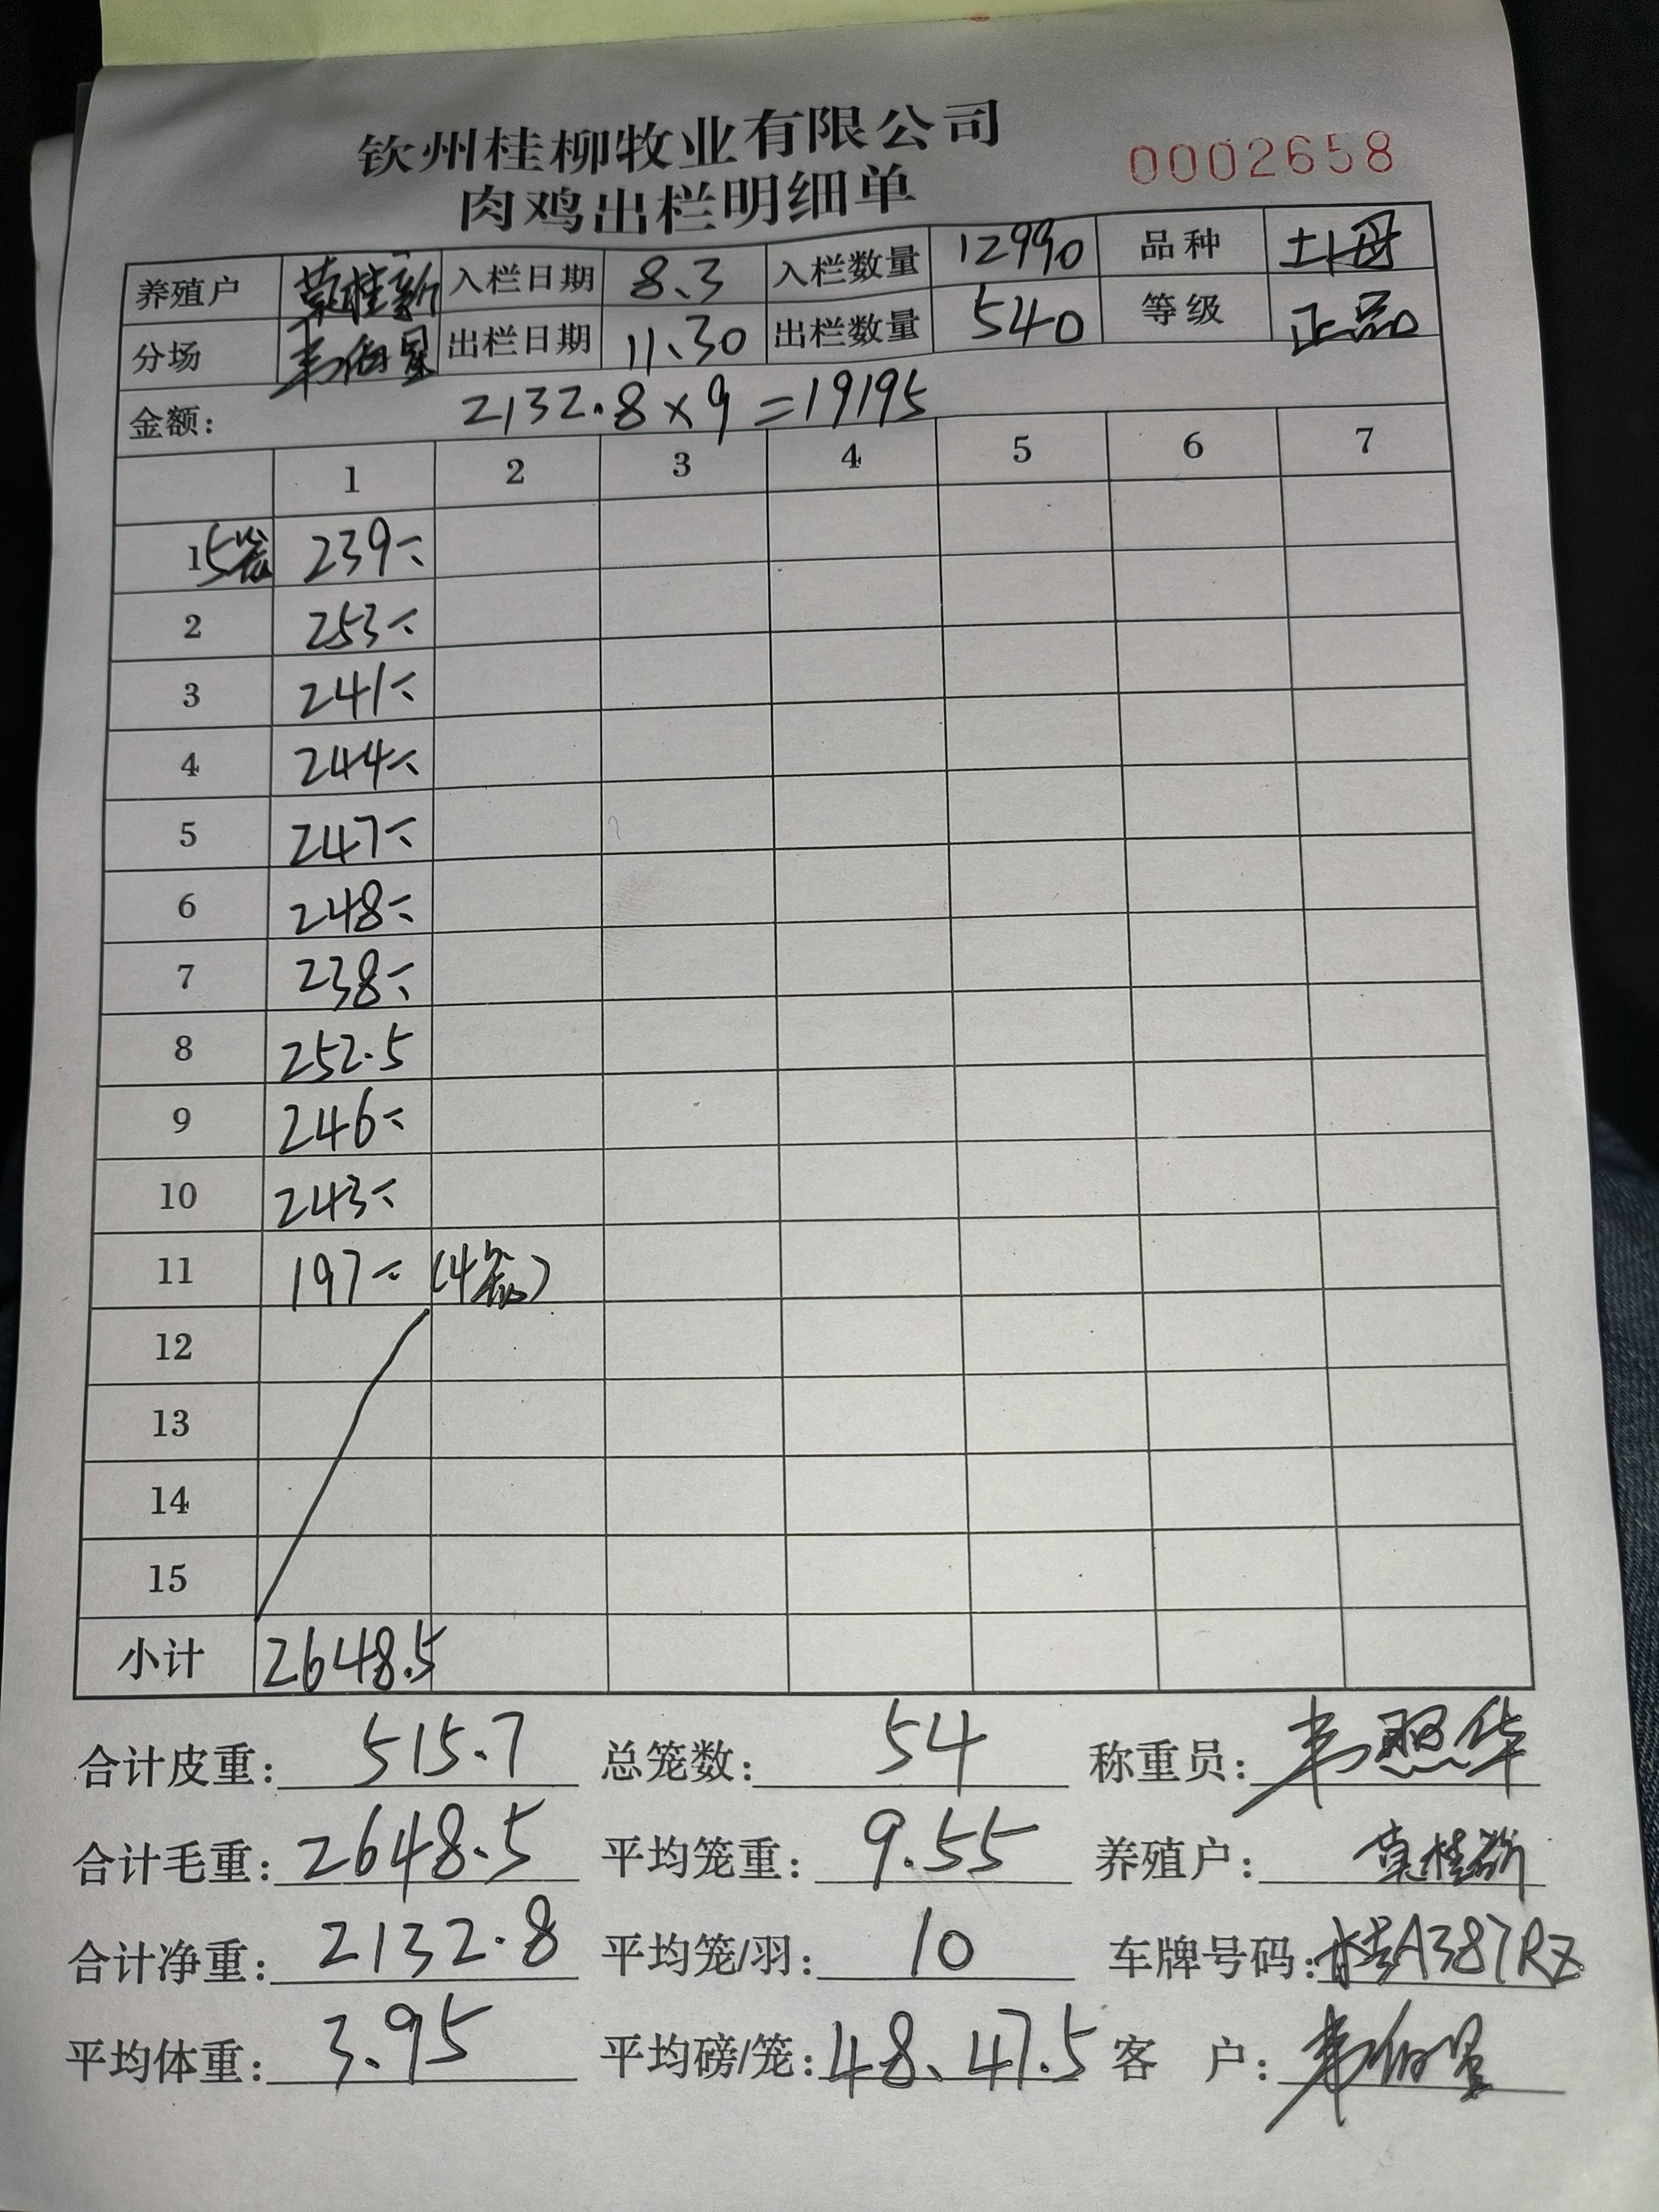 钦州桂柳牧业有限公司
肉鸡出栏明细单
0002658
养殖户 莫桂新 入栏日期 8.3 入栏数量 12990 品种 土母
分场 韦伯 出栏日期 11.30 出栏数量 540 等级 正品
金额: 2132.8×9=19195
1 2 3 4 5 6 7
1 5笼 239
2 253
3 241
4 244
5 247
6 248
7 238
8 252.5
9 246
10 243
11 197 (4笼)
12
13
14
15
小计 2648.5
合计皮重: 515.7 总笼数: 54 称重员: 韦照华
合计毛重: 2648.5 平均笼重: 9.55 养殖户: 莫桂新
合计净重: 2132.8 平均笼/羽: 10 车牌号码: 桂A387RZ
平均体重: 3.95 平均磅/笼: 48、47.5 客 户: 韦伯